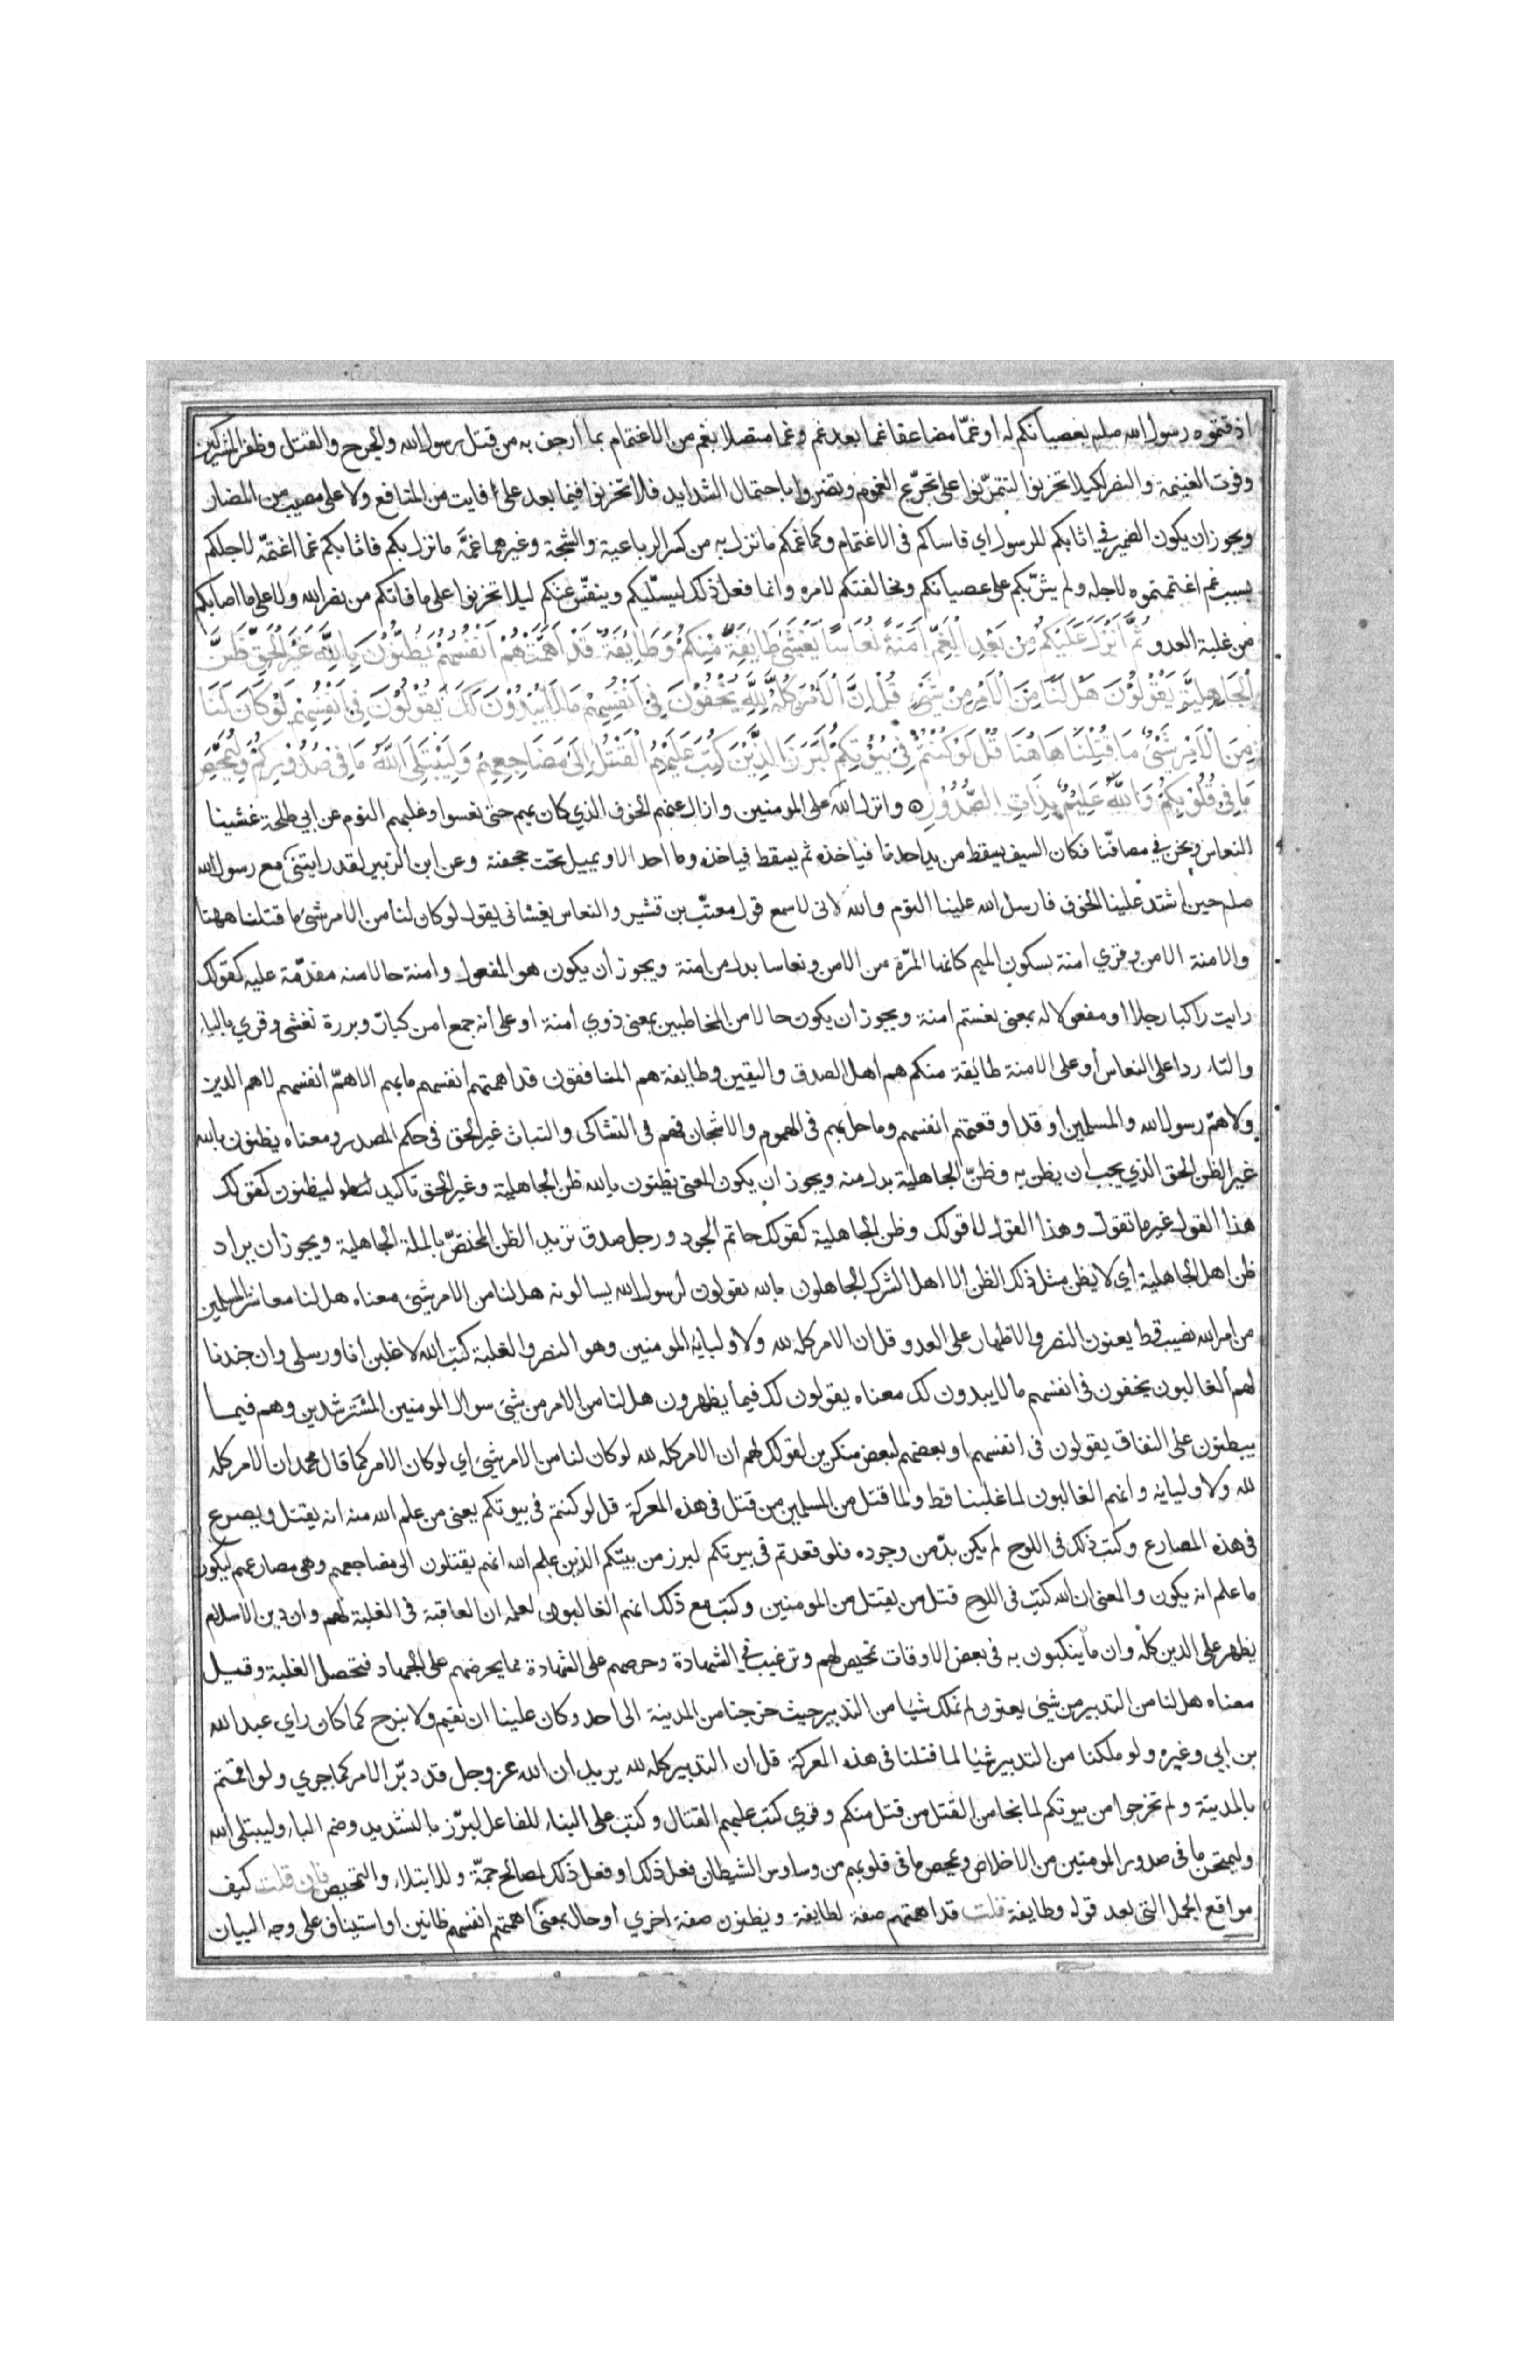 اذقتموه رسول الله صلم بعصيانكم له او غمّا مضاعفا غما بعد غم وغما متصلا بغم من الاغتمام بما ارجف به من قتل رسول الله والجرح والقتل وظفر المشركين
وفوت الغنيمة والنصر لكيلا تحزنوا لتتمرّنوا على تجرّع الغموم وتضروا باحتمال الشدايد فلا تحزنوا فيما بعد على فايت من المنافع ولا على مصيب من المضار
ويجوز ان يكون الضمير في اثابكم للرسول اي فاساكم في الاغتمام وكما غمكم ما نزل به من كسر الرباعية والشجة وغيرهما غمّه ما نزل بكم فاثابكم غما اغتمّه لاجلكم
بسبب غم اغتممتموه لاجله ولم يثرّبكم على عصيانكم ومخالفتكم لامره وانما فعل ذلك ليسلّيكم وينفّس عنكم ليلا تحزنوا على ما فاتكم من نصر الله ولا على ما اصابكم
من غلبة العدو ثُمَّ أَنْزَلَ عَلَيْكُمْ مِنْ بَعْدِ الْغَمِّ أَمَنَةً نُعَاسًا يَغْشَى طَائِفَةً مِنْكُمْ وَطَائِفَةٌ قَدْ أَهَمَّتْهُمْ أَنْفُسُهُمْ يَظُنُّونَ بِاللَّهِ غَيْرَ الْحَقِّ ظَنَّ
الْجَاهِلِيَّةِ يَقُولُونَ هَلْ لَنَا مِنَ الْأَمْرِ مِنْ شَيْءٍ قُلْ إِنَّ الْأَمْرَ كُلَّهُ لِلَّهِ يُخْفُونَ فِي أَنْفُسِهِمْ مَا لَا يُبْدُونَ لَكَ يَقُولُونَ فِي أَنْفُسِهِمْ لَوْ كَانَ لَنَا
مِنَ الْأَمْرِ شَيْءٌ مَا قُتِلْنَا هَاهُنَا قُلْ لَوْ كُنْتُمْ فِي بُيُوتِكُمْ لَبَرَزَ الَّذِينَ كُتِبَ عَلَيْهِمُ الْقَتْلُ إِلَى مَضَاجِعِهِمْ وَلِيَبْتَلِيَ اللَّهُ مَا فِي صُدُورِكُمْ وَلِيُمَحِّصَ
مَا فِي قُلُوبِكُمْ وَاللَّهُ عَلِيمٌ بِذَاتِ الصُّدُورِ ۞ وانزل الله على المومنين وازال عنهم الخوف الذي كان بهم حتى نعسوا وغلبهم النوم عن ابي طلحة غشينا
النعاس ونحن في مصافّنا فكان السيف يسقط من يد احدنا فياخذه ثم يسقط فياخذه وما احد الا ويميل تحت جحفته وعن ابن الزبير لقد رايتني مع رسول الله
صلم حين اشتد علينا الخوف فارسل الله علينا النوم والله لاني لاسمع قول معتّب بن قشير والنعاس يغشاني يقول لو كان لنا من الامر شئ ما قتلنا ههنا
والامنة الامن وقري امنة بسكون الميم كانها المرّة من الامن ونعاسا بدل من امنة ويجوز ان يكون هو المفعول وامنة حالا منه مقدّمة عليه كقولك
رايت راكبا رجلا او مفعولا له بمعنى نعستم امنة ويجوز ان يكون حالا من المخاطبين بمعنى ذوي امنة او على انه جمع امن كبارّ وبررة تغشى وقري بالياء
والتاء ردا على النعاس او على الامنة طائفة منكم هم اهل الصدق واليقين وطايفة هم المنافقون قد اهمتهم انفسهم ما بهم الا همّ انفسهم لا هم الدين
ولا همّ رسول الله والمسلمين او قد اوقعتهم انفسهم وما حل بهم في الهموم والاشجان فهم في التشاكي والتباث غير الحق في حكم المصدر ومعناه يظنون بالله
غير الظن الحق الذي يجب ان يظن به وظنّ الجاهلية بدل منه ويجوز ان يكون المعنى يظنون بالله ظن الجاهلية وغير الحق تاكيد ليظنون كقولك
هذا القول غير ما تقول وهذا القول لا قولك وظن الجاهلية كقولك حاتم الجود ورجل صدق تريد الظن المختصّ بالملة الجاهلية ويجوز ان يراد
ظن اهل الجاهلية اي لا يظن مثل ذلك الظن الا اهل الشرك الجاهلون بالله يقولون لرسول الله يسالونه هل لنا من الامر شئ معناه هل لنا معاشر المسلمين
من امر الله نصيب قط يعنون النصر والاظهار على العدو قل ان الامر كله لله ولاوليائه المومنين وهو النصر والغلبة كتب الله لاغلبن انا ورسلي وان جندنا
لهم الغالبون يخفون في انفسهم ما لا يبدون لك معناه يقولون لك فيما يظهرون هل لنا من الامر من شئ سوال المومنين المسترشدين وهم فيما
يبطنون على النفاق يقولون في انفسهم او بعضهم لبعض منكرين لقولك لهم ان الامر كله لله لو كان لنا من الامر شئ اي لو كان الامر كما قال محمد ان الامر كله
لله ولاوليايه وانهم الغالبون لما غلبنا قط ولما قتل من المسلمين من قتل في هذه المعركة قل لو كنتم في بيوتكم يعني من علم الله منه انه يقتل ويصرع
في هذه المصارع وكتب ذلك في اللوح لم يكن بدّ من وجوده فلو قعدتم في بيوتكم لبرز من بينكم الذين علم الله انهم يقتلون الى مضاجعهم وهي مصارعهم ليكون
ما علم انه يكون والمعنى ان الله كتب في اللوح قتل من يقتل من المومنين وكتب مع ذلك انهم الغالبون لعلمه ان العاقبة في الغلبة لهم وان دين الاسلام
يظهر على الدين كله وان ما ينكبون به في بعض الاوقات تمحيص لهم وترغيب في الشهادة وحرصهم على الشهادة مما يحرضهم على الجهاد فتحصل الغلبة وقيل
معناه هل لنا من التدبير من شئ يعنون لم نملك شيا من التدبير حيث خرجنا من المدينة الى احد وكان علينا ان نقيم ولا نبرح كما كان راي عبد الله
بن ابي وغيره ولو ملكنا من التدبير شيا لما قتلنا في هذه المعركة قل ان التدبير كله لله يريد ان الله عز وجل قد دبّر الامر كما جري ولو اقمتم
بالمدينة ولم تخرجوا من بيوتكم لما نجا من القتل من قتل منكم وقري كتب عليهم القتال وكتب على البناء للفاعل لبرّز بالتشديد وضم الباء وليبتلي الله
وليمتحن ما في صدور المومنين من الاخلاص ويمحص ما في قلوبهم من وساوس الشيطان فعل ذلك او فعل ذلك لمصالح جمّة وللابتلاء والتمحيص فان قلت كيف
مواقع الجمل التي بعد قوله وطايفة قلت قد اهمتهم صفة لطايفة ويظنون صفة اخري او حال بمعنى اهمتهم انفسهم ظانين او استيناف على وجه البيان